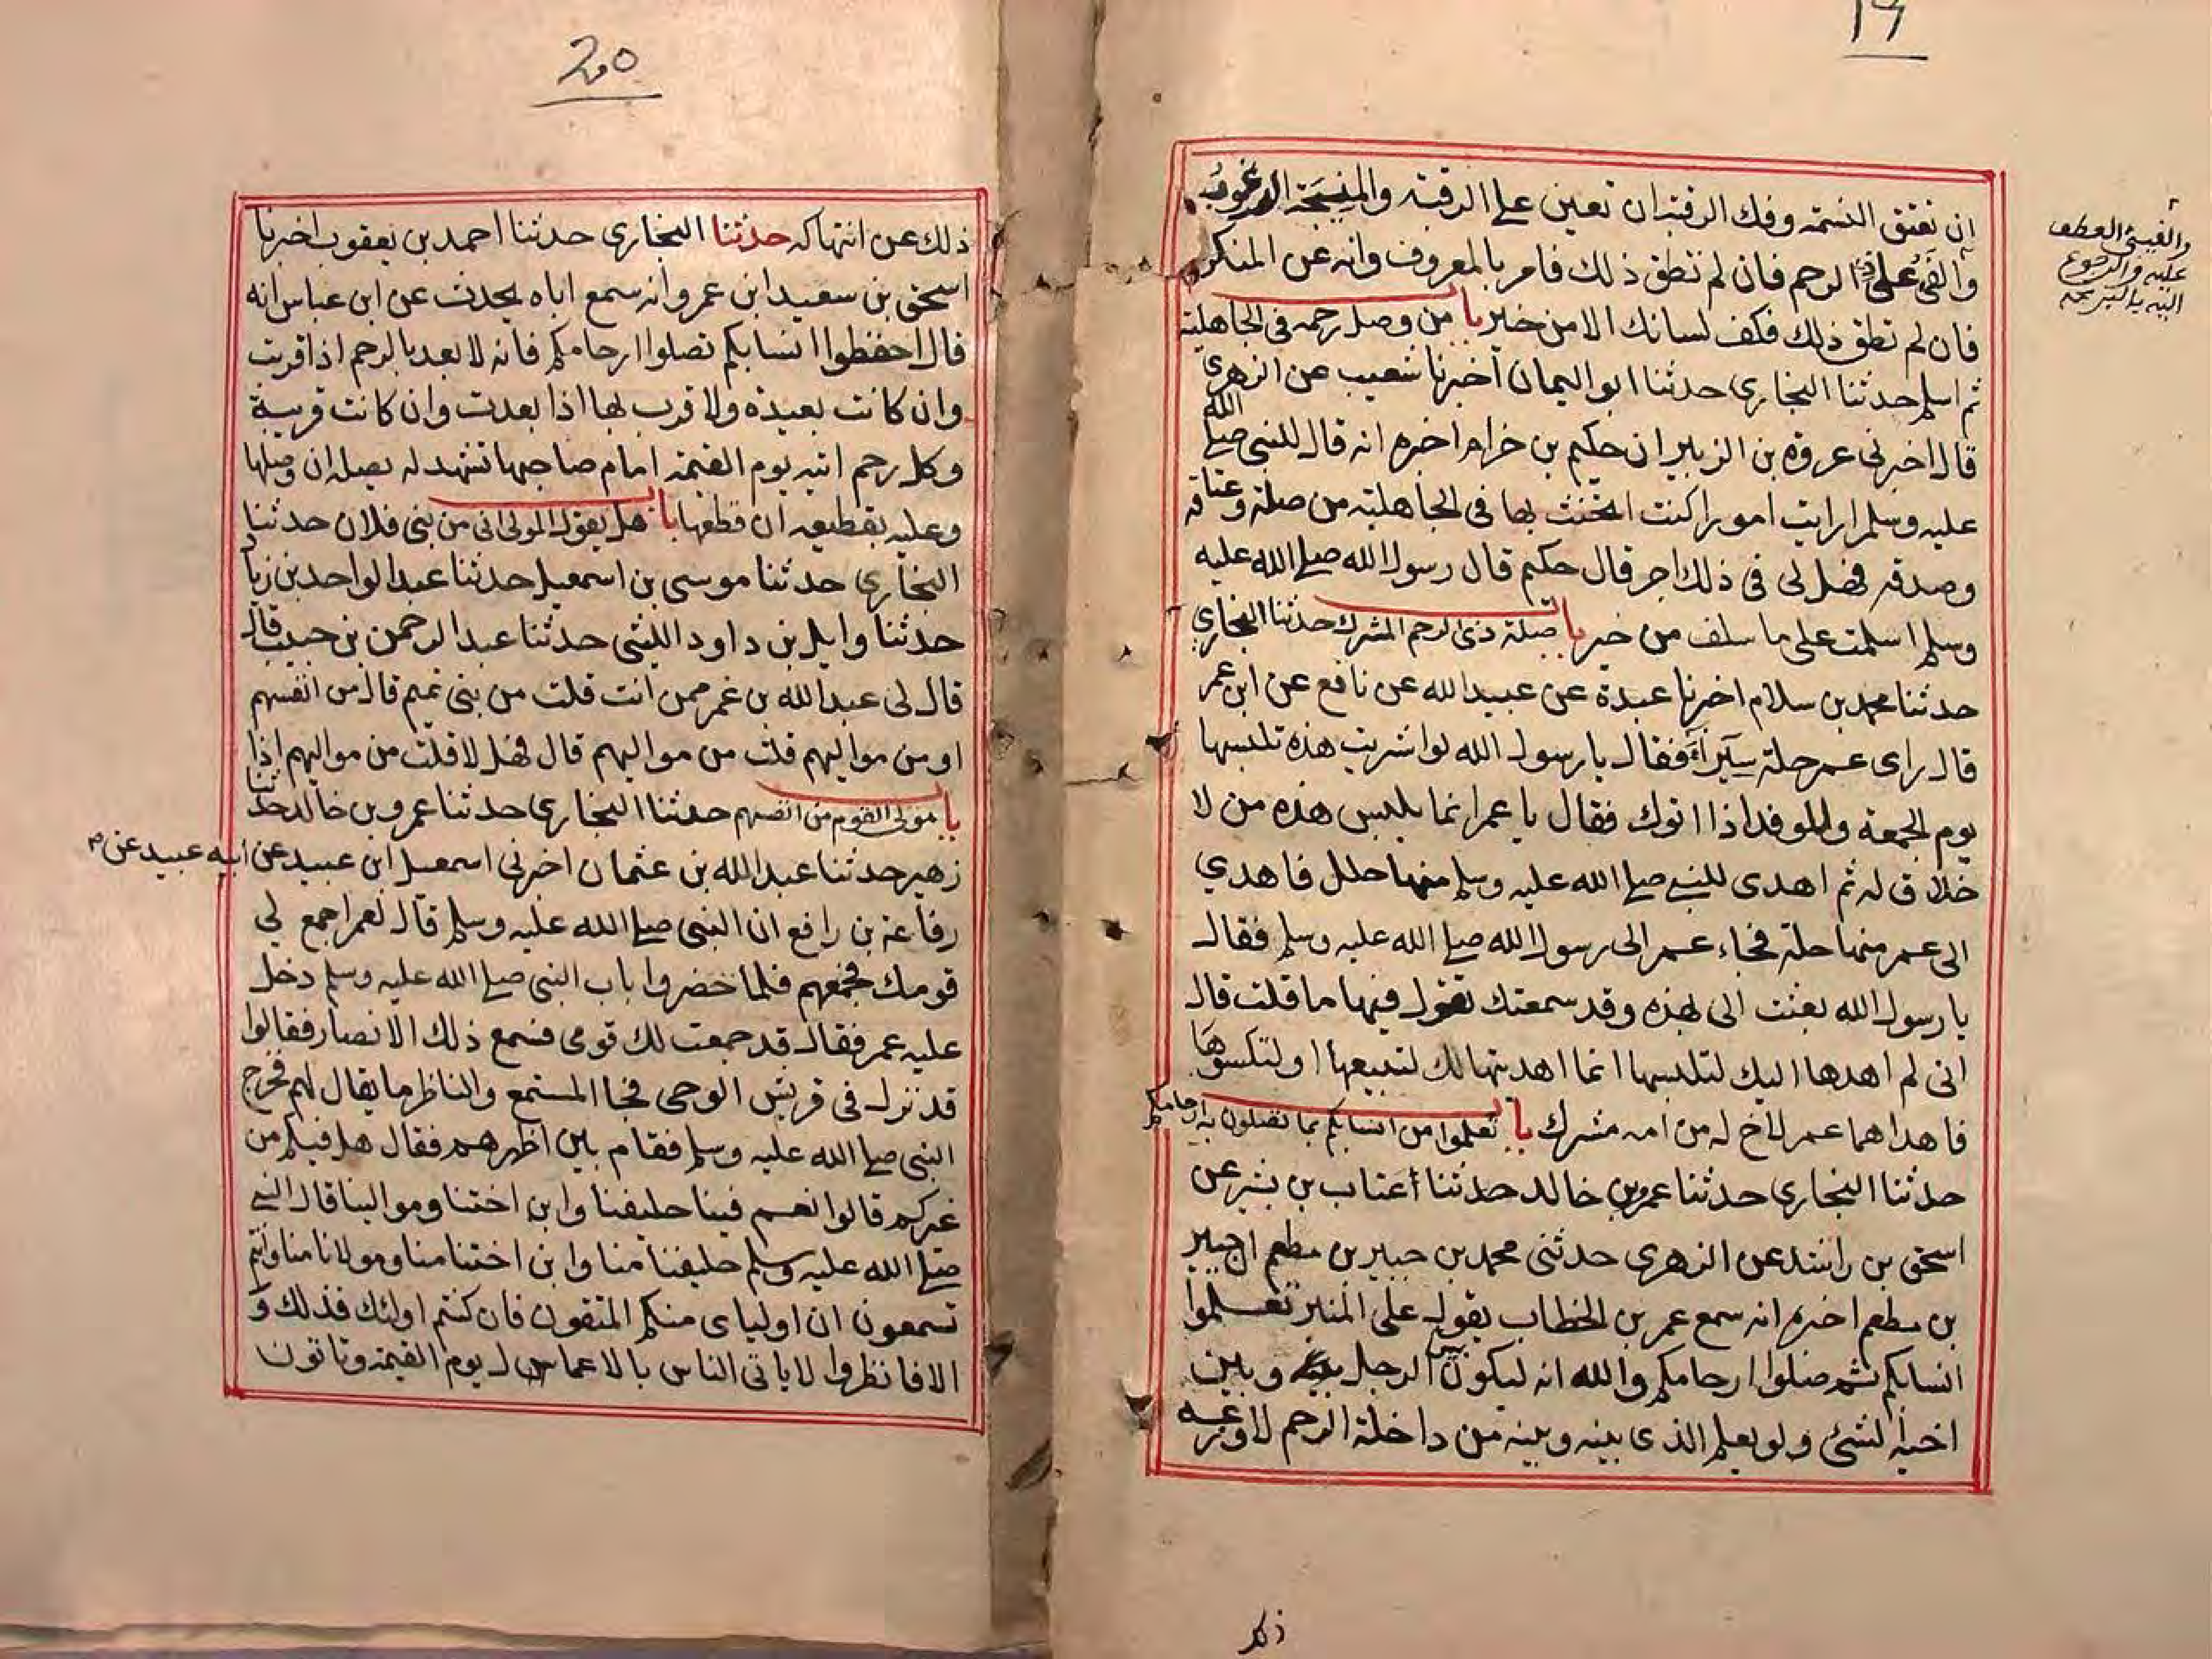 19
ان تعتق النسمة وفك الرقبة ان تعين على الرقبة والمنيحة الرغوب
والفئ على ذى الرحم فان لم تطق ذلك فامر بالمعروف وانه عن المنكر
فان لم تطق ذلك فكف لسانك الا من خير باب من وصل رحمه فى الجاهلية
ثم اسلم حدثنا البخارى حدثنا ابو اليمان اخبرنا شعيب عن الزهرى
قال اخبرنى عروة بن الزبير ان حكيم بن حزام اخبره انه قال للنبى صلى الله
عليه وسلم ارايت امورا كنت اتحنث بها فى الجاهلية من صلة وعتاقة
وصدقه فهل لى فى ذلك اجر قال حكيم قال رسول الله صلى الله عليه
وسلم اسلمت على ما سلف من خير باب صلة ذى الرحم المشرك حدثنا البخاري
حدثنا محمد بن سلام اخبرنا عبدة عن عبيد الله عن نافع عن ابن عمر
قال راى عمر حلة سيراء فقال يا رسول الله لو اشريت هذه تلبسها
يوم الجمعة وللوفد اذا اتوك فقال يا عمر انما يلبس هذه من لا
خلاق له ثم اهدى للنبى صلى الله عليه وسلم منها حلل فاهدي
الى عمر منها حلة فجاء عمر الى رسول الله صلى الله عليه وسلم فقال
يا رسول الله بعثت الى هذه وقد سمعتك تقول فيها ما قلت قال
انى لم اهدها اليك لتلبسها انما اهديتها لك لتبيعها او لتكسوها
فاهداهما عمر لاخ له من امه مشرك باب تعلموا من انسابكم بما تصلون به ارحامكم
حدثنا البخارى حدثنا عمرو بن خالد حدثنا أعتاب بن بشر عن
اسحق بن راشد عن الزهرى حدثنى محمد بن جبير بن مطعم ان جبير
بن مطعم اخبره انه سمع عمر بن الخطاب يقول على المنبر تعلموا
انسابكم ثم صلوا ارحامكم والله انه ليكون بين الرجل وبين
اخيه الشئ ولو يعلم الذى بينه وبينه من داخلة الرحم لاوزعه
والفيئ العطف
عليه والرجوع
اليه بالبر
20
ذلك عن انتهاكه حدثنا البخارى حدثنا احمد بن يعقوب اخبرنا
اسحق بن سعيد ابن عمرو انه سمع اباه يحدث عن ابن عباس انه
قال احفظوا انسابكم تصلوا ارحامكم فانه لا بعد بالرحم اذا قربت
وان كانت بعيدة ولا قرب بها اذا بعدت وان كانت قريبة
وكل رحم اتيه يوم القيمة امام صاحبها تشهد له بصله ان وصلها
وعليه بقطيعه ان قطعها باب هل يقول المولى انى من بنى فلان حدثنا
البخارى حدثنا موسى بن اسمعيل حدثنا عبد الواحد بن زياد
حدثنا وايل بن داود الليثى حدثنا عبد الرحمن بن حبيب قال
قال لى عبد الله بن عمر ممن انت قلت من بنى تميم قال من انفسهم
او من مواليهم قلت من مواليهم قال فهلا قلت من مواليهم اذا
باب مولى القوم من انفسهم حدثنا البخارى حدثنا عمرو بن خالد حدثنا
زهير حدثنا عبد الله بن عثمان اخبرنى اسمعيل ابن عبيد عن ابيه عبيد عن
رفاعة بن رافع ان النبى صلى الله عليه وسلم قال لعمر اجمع لي
قومك فجمعهم فلما حضروا باب النبى صلى الله عليه وسلم دخل
عليه عمر فقال قد جمعت لك قومى فسمع ذلك الانصار فقالوا
قد نزل فى قريش الوحى فجا المستمع والناظر ما يقال لهم فخرج
النبى صلى الله عليه وسلم فقام بين اظهرهم فقال هل فيكم من
غيركم قالوا نعم فينا حليفنا وابن اختنا وموالينا قال النبى
صلى الله عليه وسلم حليفنا منا وابن اختنا منا ومولانا منا وانتم
تسمعون ان اولياى منكم المتقون فان كنتم اولئك فذلك و
الا فانظروا لا ياتى الناس بالاعمال يوم القيمة وتاتون
ذلك